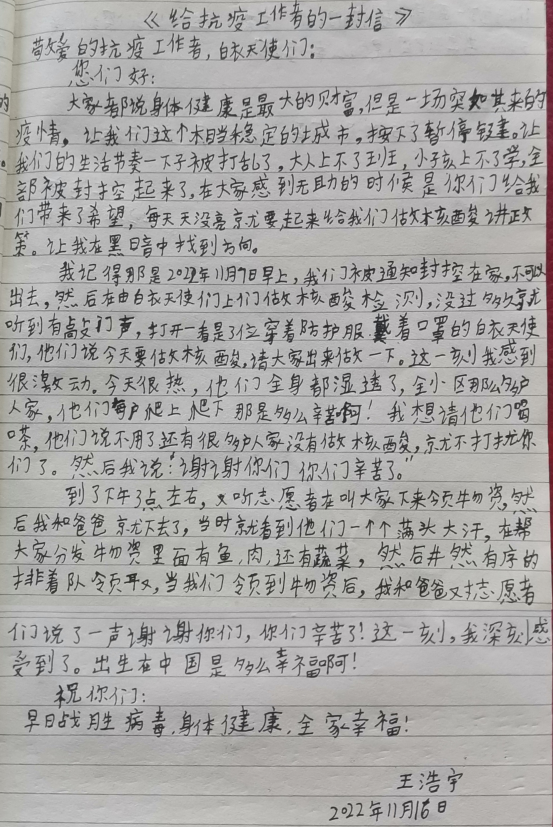 《给抗疫工作者的一封信》
敬爱的抗疫工作者，白衣天使们：
您们好：
大家都说身体健康是最大的财富，但是一场突如其来的
疫情，让我们这个本当稳定的城市，按下了暂停键。让
我们的生活节奏一下子被打乱了，大人上不了班，小孩上不了学，全
部被封控起来了，在大家感到无助的时候是你们给我
们带来了希望，每天天没亮就要起来给我们做核酸讲政
策。让我在黑暗中找到方向。
我记得那是2022年11月9日早上，我们被通知封控在家，不可以
出去，然后在由白衣天使们上门做核酸检测，没过多久就
听到有敲门声，打开一看是了位穿着防护服戴着口罩的白衣天使
们，他们说今天要做核酸，请大家出来做一下。这一刻我感到
很激动。今天很热，他们全身都湿透了，全小区那么多户
人家，他们每户爬上爬下那是多么辛苦啊！我想请他们喝
口茶，他们说不用了还有很多户人家没有做核酸，就不打扰你
们了。然后我说："谢谢你们你们辛苦了。"
到了下午3点左右，又听志愿者在叫大家下来领物资，然
后我和爸爸就下去了，当时就看到他们一个个满头大汗，在帮
大家分发物资里面有鱼，肉，还有蔬菜，然后井然有序的
排着队领取，当我们领到物资后，我和爸爸又对志愿者
们说了一声谢谢你们，你们辛苦了！这一刻，我深刻感
受到了。出生在中国是多么幸福啊！
祝你们：
早日战胜病毒，身体健康，全家幸福！
王浩宇
2022年11月16日